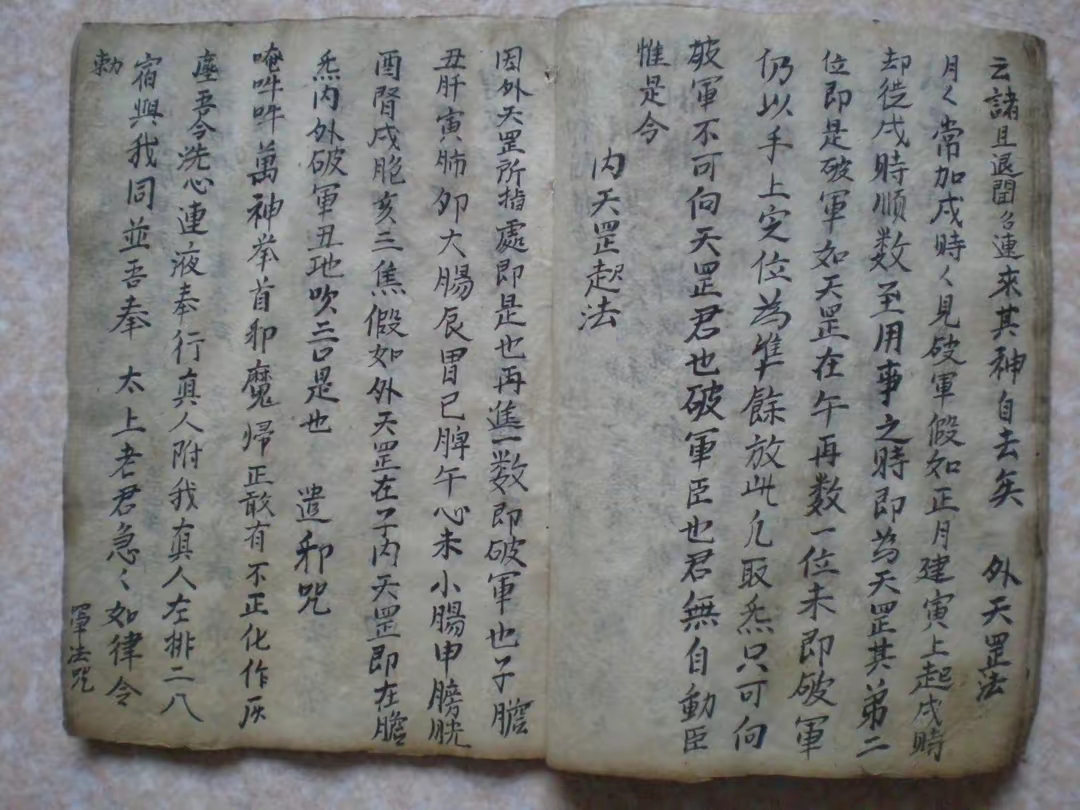 云諸且退閏名連來其神自去矣　外天罡法
月〻常加戌時〻見破軍假如正月建寅上起戌時
却從戌時順数至用事之時即為天罡其弟二
位即是破軍如天罡在午再数一位未即破軍
仍以手上定位為准餘放此凢取炁只可向
破軍不可向天罡君也破軍臣也君無自動臣
惟是令
内天罡起法
因外天罡所指處即是也再進一数即破軍也子膽
丑肝寅肺卯大腸辰胃巳脾午心未小腸申膀胱
酉腎戌胞亥三焦假如外天罡在子内天罡即在膽
炁内外破軍丑地吹三口是也　遣邪咒
唵吽吽萬神举首邪魔帰正敢有不正化作灰
塵吾今洗心連液奉行真人附我真人左排二八
宿與我同並吾奉　太上老君急〻如律令
勅　　罩法咒